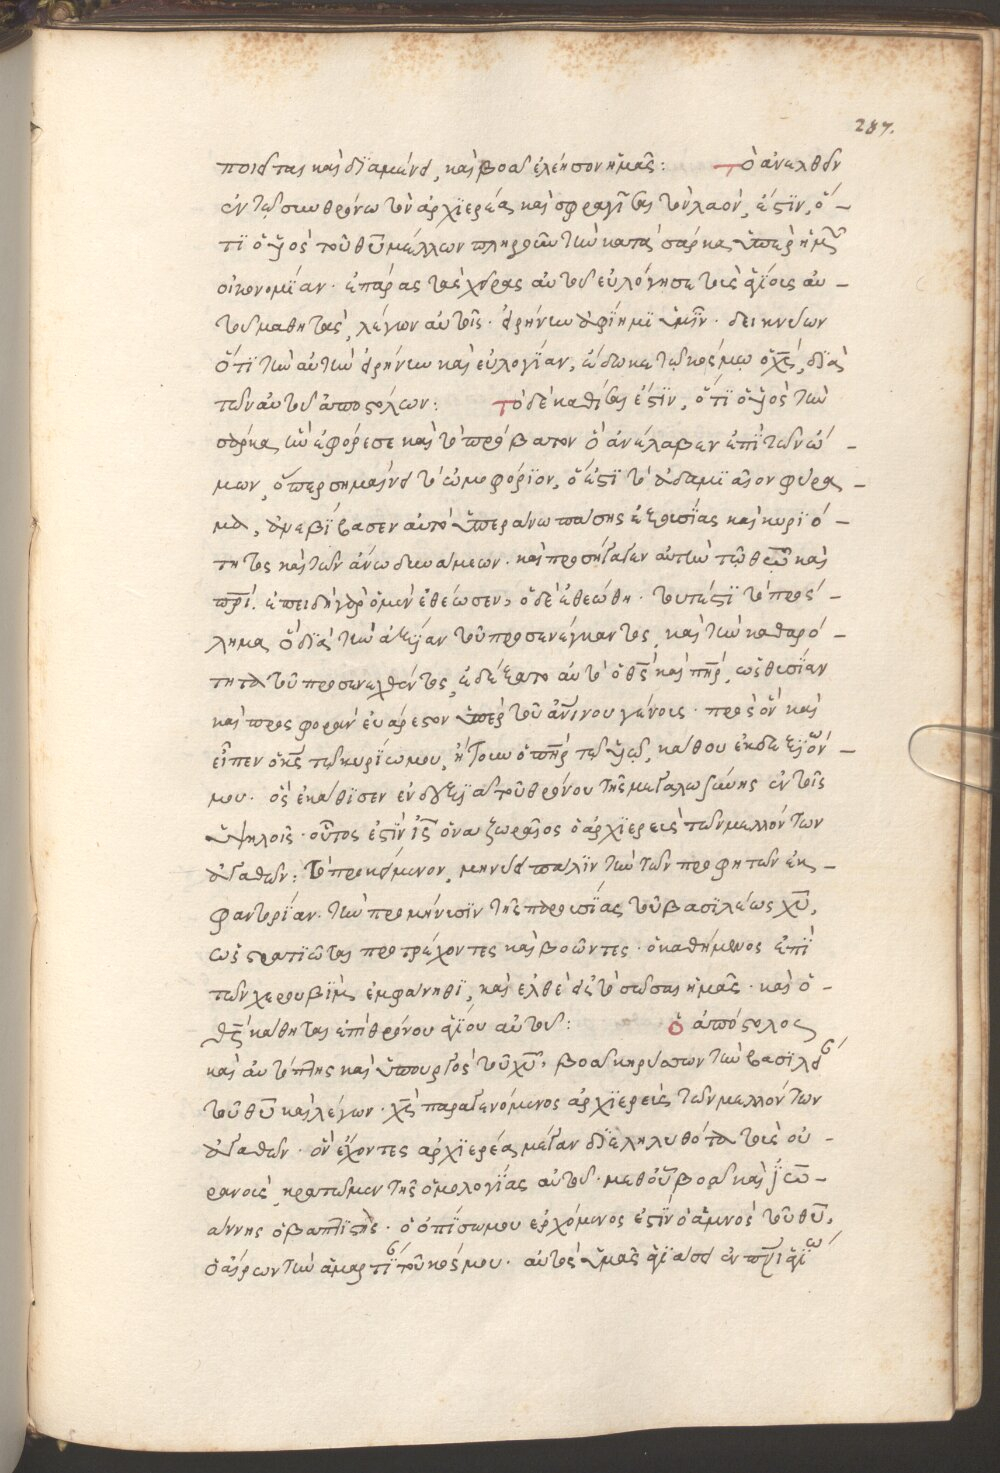 287.
ποιεῖται καὶ διαμένει, καὶ βοᾷ ἐλέησον ἡμᾶς: Τὸ ἀνελθεῖν
ἐν τῷ συνθρόνω τὸν ἀρχιερέα καὶ σφραγίσαι τὸν λαὸν, ἔστϊν, ὅ-
τϊ ὁ ὑιὸς τοῦ θ̅υ̅ μέλλων πληροῦν τὴν κατὰ σάρκα ὑπὲρ ἡμῶν
οἰκονομίαν· ἐπάρας τὰς χεῖρας αὐτοῦ εὐλόγησε τοὺς ἁγίοις αὐ-
τοῦ μαθητὰς, λέγων αὐτοῖς· εἰρήνην ἀφίημϊ ὑμῖν· δεικνύων
ὅτϊ τὴν αὐτὴν εἰρήνην καὶ εὐλογίαν, ἔδωκε τῷ κόσμῳ ὁ χ̅ς̅, διὰ
τῶν αὐτοῦ ἀποστόλων: Τὸ δὲ καθίσαι ἐστϊν, ὅτϊ ὁ ὑιὸς τὴν
σάρκα ἣν ἐφόρεσε καὶ τὸ πρόβατον ὃ ἀνέλαβεν ἐπὶ τῶν ὤ-
μων, ὅπερ σημαίνει τὸ ὠμοφόριον, ὅ ἐστϊ τὸ ἀδαμϊαῖον φύρα-
μα, ἀνεβίβασεν αὐτὸ ὑπεράνω πάσης ἐξουσίας καὶ κυριό-
τητος καὶ τῶν ἄνω δυνάμεων· καὶ προσήγαγεν αὐτὴν τῷ θεῷ καὶ
π̅ρ̅ι̅. ἐπειδὴ γὰρ ὁ μὲν ἐθέωσεν, ὁ δὲ ἐθεώθη· τουτέστϊ τὸ πρόσ-
λημα, ὃ διὰ τὴν ἀξίαν τοῦ προσενέγκαντος, καὶ τὴν καθαρό-
τητα τοῦ προσενεχθέντος, ἐδέξατο αὐτὸ ὁ θ̅ς̅ καὶ π̅η̅ρ̅, ὡς θυσίαν
καὶ προσφορὰν εὐάρεστον ὑπὲρ τοῦ ἀ̅ν̅ίνου γένους· πρὸς ὃν καὶ
εἶπεν ὁ κ̅ς̅ τῷ κυρίω μου, ἤγουν ὁ π̅η̅ρ̅ τῷ ὑιῷ, κάθου ἐκ δεξιῶν
μου. ὃς ἐκάθισεν ἐν δεξιᾷ τοῦ θρόνου τῆς μεγαλωσύνης ἐν τοῖς
ὑψηλοῖς· οὗτος ἐστϊν ι̅ς̅ ὁ ναζωραῖος ὁ ἀρχιερεὺς τῶν μελλόντων
ἀγαθῶν: Τὸ προκείμενον, μηνύει πάλϊν τὴν τῶν προφητῶν ἐκ-
φαντορίαν. τὴν προμήνυσϊν τῆς παρουσίας τοῦ βασϊλέως χ̅υ̅,
ὡς στρατιῶται προτρέχοντες καὶ βοῶντες· ὁ καθήμενος ἐπὶ
τῶν χερουβὶμ ἐμφάνηθϊ, καὶ ἐλθὲ εἰς τὸ σῶσαι ἡμᾶς· καὶ ὁ-
θ̅ς̅ κάθηται ἐπὶ θρόνου ἁγίου αὐτοῦ: Ὁ ἀπόστολος
καὶ αὐτόπτης καὶ ὑπουργὸς τοῦ χ̅υ̅, βοᾷ κηρύττων τὴν βασϊλεί
τοῦ θ̅υ̅ καὶ λέγων· χ̅ς̅ παραγενόμενος ἀρχιερεὺς τῶν μελλόντων
ἀγαθῶν· ὃν ἔχοντες ἀρχιερέα μέγαν διεληλυθότα τοὺς οὐ-
ρανοὺς, κρατῶμεν τῆς ὁμολογίας αὐτοῦ· μεθ' οὗ βοᾷ καὶ ἰω-
άννης ὁ βαπτϊστής· ὁ ὀπίσω μου ἐρχόμενος ἐστὶν ὁ ἀμνὸς τοῦ θ̅υ̅,
ὁ αἴρων τὴν ἁμαρτί τοῦ κόσμου· αὐτὸς ὑμᾶς ἁγιάσει ἐν π̅ν̅ι̅ ἁγίω